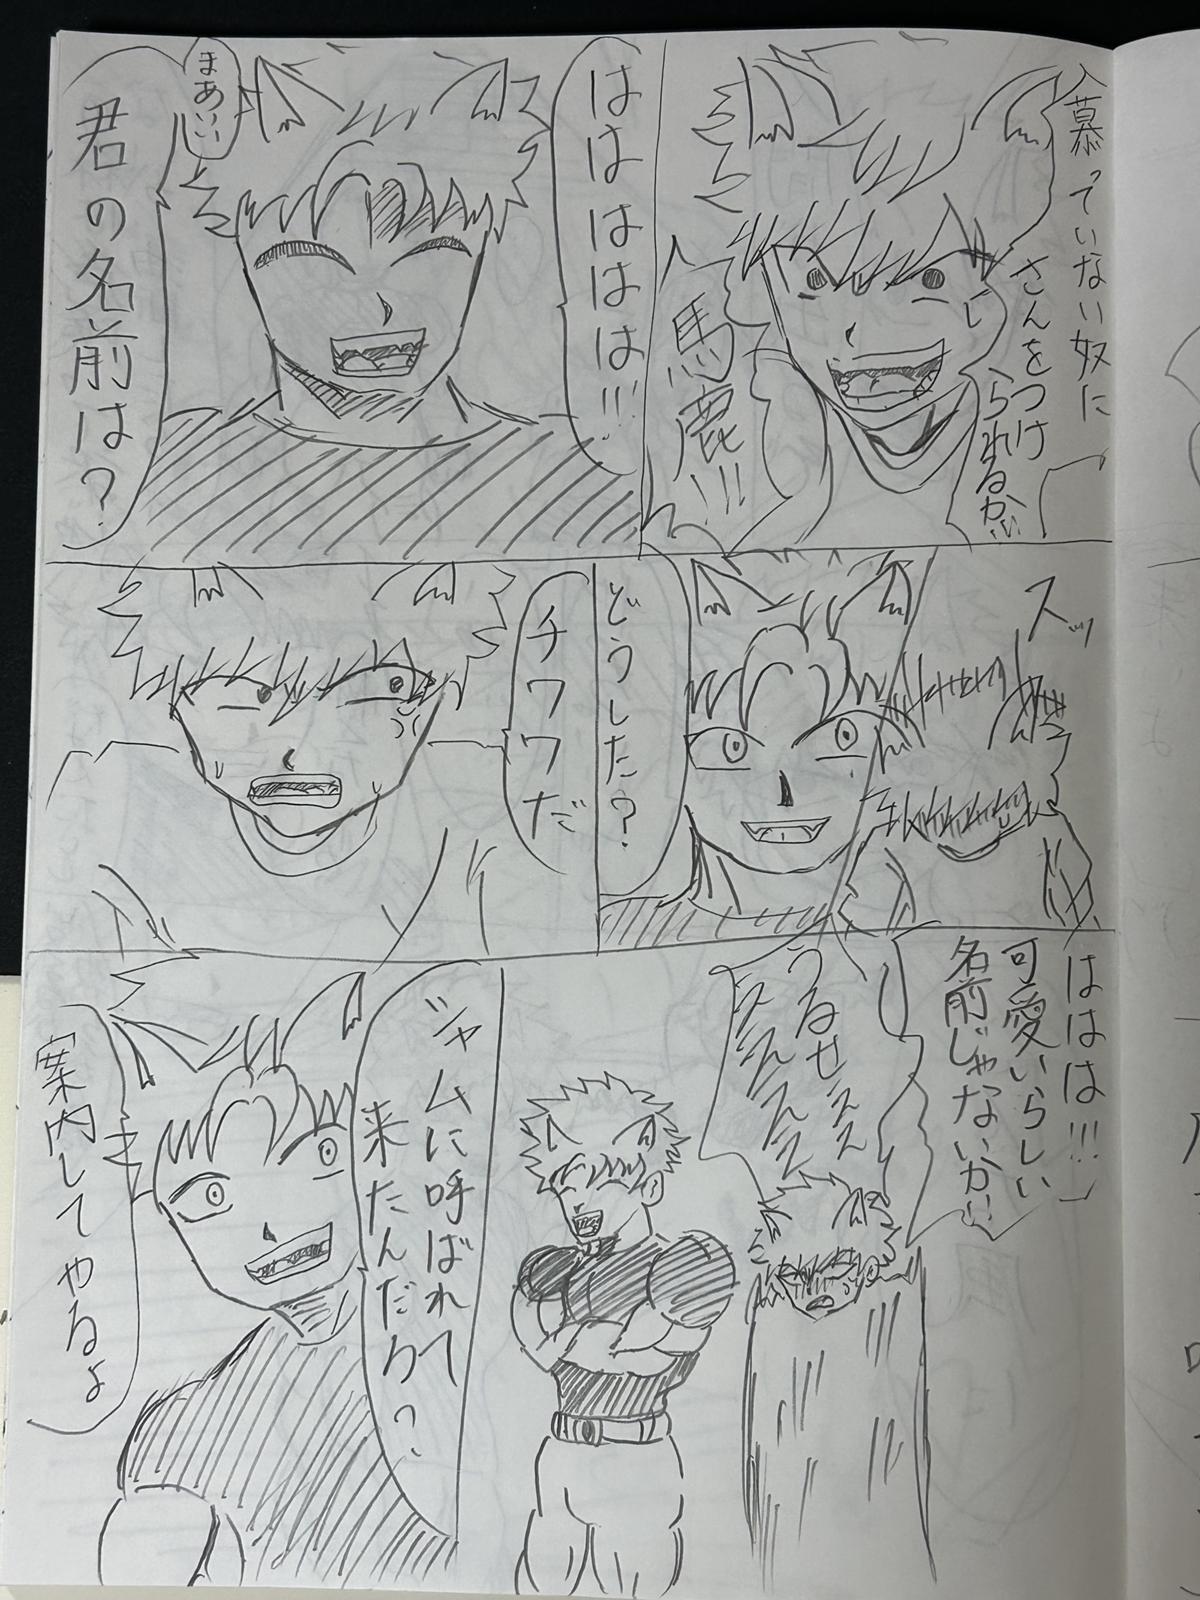 慕っていない奴に
さんをつけ
られるか!!!
馬鹿!!!
はははははは!!!
まあいい
君の名前は?
スッ
どうした?
チワワだ
ははは!!!
可愛いらしい
名前じゃないか!!
うるせえええ
ええええええ
シャムに呼ばれて
来たんだろ?
案内してやるよ